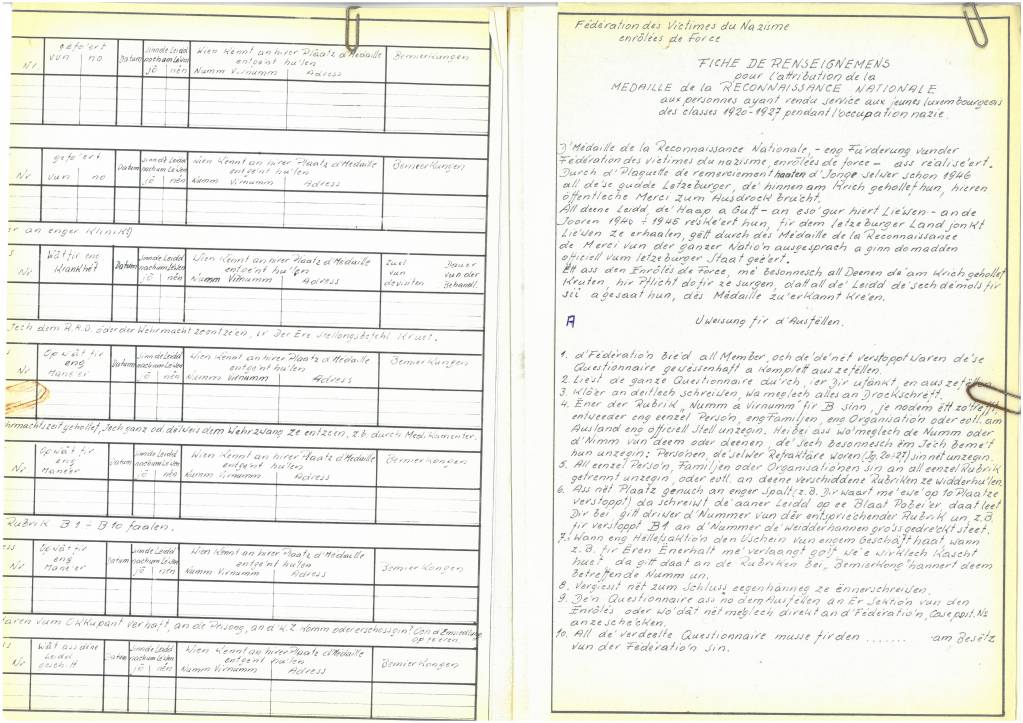 gefo'ert
Nr vun no Datum sinn de Leidd noch um Liewen jô nén Wien kennt an hirer Plaatz d'Medaille entge'nt hu'len Numm Virnumm Adress Bemierkungen
gefo'ert
Nr vun no Datum sinn de Leidd noch um Liewen jô nén Wien kennt an hirer Plaatz d'Medaille entge'nt hu'len Numm Virnumm Adress Bemierkungen
er an enger Klinik?)
Nr Wât fir eng Krankhét Datum sinn de Leidd noch um Liewen jô nén Wien kennt an hirer Plaatz d'Medaille entge'nt hu'len Numm Virnumm Adress Zuel vun devinten Dauer vun der Behandl.
Jech dem R.A.D. oder der Wehrmacht z'entze'en, ir Der Ere Stellongsbefehl krut.
Nr Op wât fir eng Mane'er Datum sinn de Leidd noch um Liewen jô nén Wien kennt an hirer Plaatz d'Medaille entge'nt hu'len Numm Virnumm Adress Bemierkungen
hrmachtszeit gehollef, Jech ganz od. deiweis dem Wehrzwang ze entzeen, z.b. durch Medikamenter.
Nr Op wât fir eng Mane'er Datum sinn de Leidd noch um Liewen jô nén Wien kennt an hirer Plaatz d'Medaille entge'nt hu'len Numm Virnumm Adress Bemierkongen
Rubrik B1 - B10 faalen.
Nr Op wât fir eng Mane'er Datum sinn de Leidd noch um Liewen jô nén Wien kennt an hirer Plaatz d'Medaille entge'nt hu'len Numm Virnumm Adress Bemierkongen
waren vum Okkupant verhaft, an de Prisong, an d'K.Z. komm oder erschoss gin?
Nr Wât ass dene Leidd geschitt Datum sinn de Leidd noch um Liewen jô nén Wien kennt an hirer Plaatz d'Medaille entge'nt hu'len Numm Virnumm Adress Bemierkongen
Fédération des Victimes du Nazisme
enrôlées de Force
FICHE DE RENSEIGNEMENS
pour l'attribution de la
MEDAILLE de la RECONNAISSANCE NATIONALE
aux personnes ayant rendu service aux jeunes luxembourgeois
des classes 1920-1927 pendant l'occupation nazie.
D'Médaille de la Reconnaissance Nationale, - eng Fuerderung vun der
Féderation des victimes du nazisme, enrôlées de force - ass réalise'ert.
Durch d'Plaquette de remerciement haaten d'Jonge selwer schon 1946
all de'se gudde Letzeburger, de' hinnen am Krich gehollef hun, hieren
öffentleche Merci zum Ausdrock brucht.
All deene Leidd, de' Haap a Gutt - an eso' gur hiert Liewen - an de
Jooren 1940 - 1945 reske'ert hun, fir dem letzeburger Land jonkt
Liewen ze erhaalen, gêtt durch des Médaille de la Reconnaissance
de Merci vun der ganzer Natio'n ausgesprach a ginn domadden
officiell vum letzeburger Staat gee'ert.
Ett ass den Enrôlés de Force, me' besonnesch all Deenen de' am Krich gehollef
kruten, hir Pflicht dofir ze surgen, datt all de' Leidd de' sech de'mols fir
sii agesaat hun, dës Médaille zu'erkannt kre'en.
A Uweisung fir d'Ausfëllen.
1. d'Fédératio'n bied all Member, och de' de' nét verstoppt waren de'se
Questionnaire gewessenhaft a komplett auszefëllen.
2. Liest de ganze Questionnaire du'rch, ier Dir ufänkt, en auszefëllen
3. Klo'er an deitlech schreiwen, wa meglech alles an Drockschrëft.
4. Ener der Rubrik „Numm a Virnumm" fir B sinn, je nodem ett zo'trefft,
entweeder eng eenzel Perso'n, eng Familjen, eng Organisation oder eotl. am
Ausland eng officiell Stell unzegin. Heibei ass wo'meglech de Numm oder
d'Nimm vun deem oder deenen, de' sech besonnesch ëm Jech beme't
hun unzegin: Persohen, de' selwer Refraktäre woren (Jg. 20-27) sin net unzegin.
5. All eenzel Perso'n, Familjen oder Organisatio'nen sin an all eenzel Rubrik
getrennt unzegin, oder eotl. an deene verschiddene Rubriken ze widderhu'len.
6. Ass nét Plaatz genuch an enger Spalt (z.B. Dir waart me' ewe' op 10 Plaatze
verstoppt) da schreiwt de' aaner Leidd op ee Blaat Pobei'er, daat leet
Dir bei gitt driwer d'Nummer vun dër entsprechender Rubrik un, z.B.
fir verstopps B1 an d'Nummer de' Weidderhannen gross gedreckt steet.
7. Wann eng Hellefsaktio'n den Uschein vun engem Geschäft haat, wann
z.B. fir Eren Enerhalt me' verlaangt go'ff we' e wirklech kascht
huet, da gitt daat an de Rubriken bei „Bemierkong" hannert deem
betreffende Numm un.
8. Vergiesst nét zum Schluss eegenhänneg ze ënnerschreiwen.
9. De'n Questionnaire ass no dem Ausfëllen an Er Sektio'n vun den
Enrôlés oder wo' dät nét méglech direkt an d'Fédératio'n, Case post. No
anzesche'cken.
10. All de' verdeelte Questionnaire musse fir den ........ am Besëtz
vun der Féderatio'n sin.